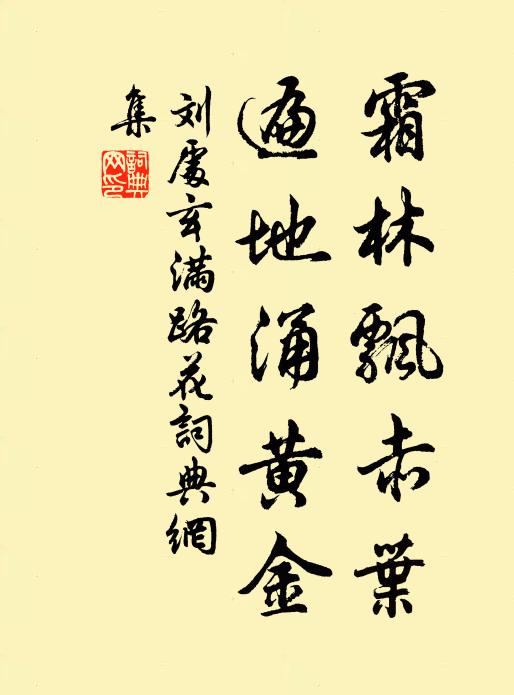 霜林飄赤葉
遍地涌黄金
刘處玄满路花詞典網
集
詞典網印